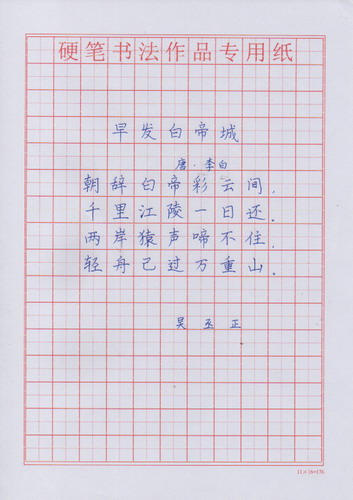 硬笔书法作品专用纸
早发白帝城
唐·李白
朝辞白帝彩云间.
千里江陵一日还.
两岸猿声啼不住.
轻舟已过万重山.
吴丞正
11×16=176